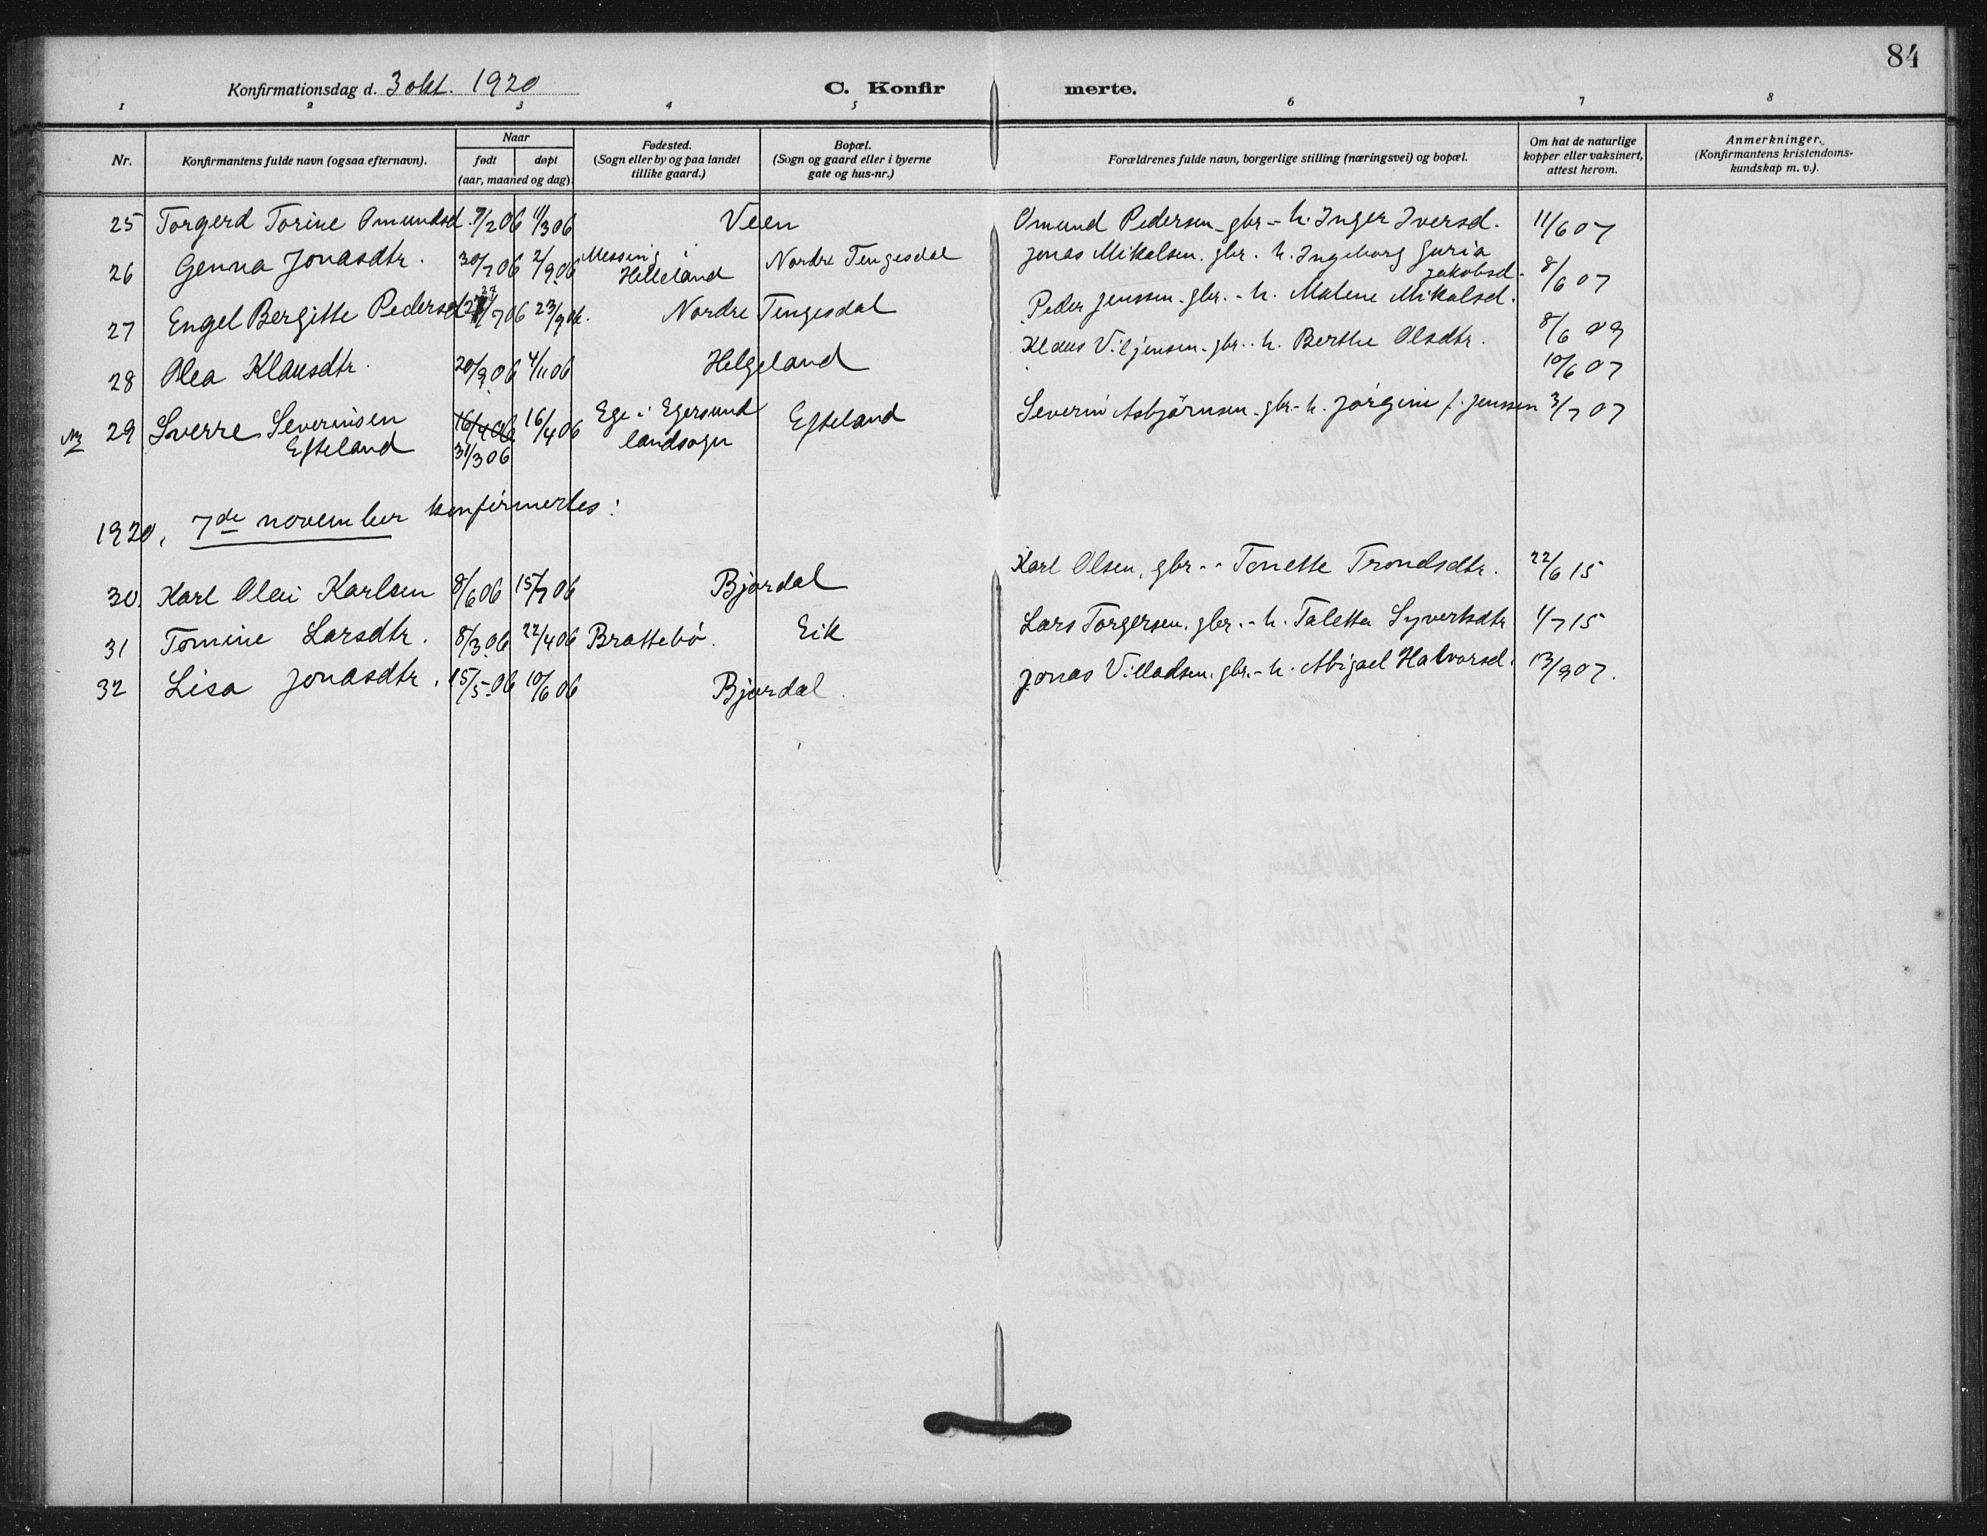 84
Konfirmationsdag d. 3 okt. 1920 C. Konfirmerte.
1 2 3 4 5 6 7 8
Nr. Konfirmantens fulde navn (ogsaa efternavn). Naar født døpt (aar, maaned og dag). Fødested. (Sogn eller by og paa landet tillike gaard.) Bopæl. (Sogn og gaard eller i byerne gate og hus-nr.) Forældrenes fulde navn, borgerlige stilling (næringsvei) og bopæl. Om hat de naturlige kopper eller vaksinert, attest herom. Anmerkninger. (Konfirmantens kristendomskundskap m. v.).
25 Torgerd Torine Omundsd. 7/2 06 11/3 06 Veen Omund Pedersen gbr. - h. Inger Iversd. 11/6 07
26 Genna Jonasdtr. 30/7 06 2/9 06 Messing i Helleland Nordre Tengesdal Jonas Mikalsen. gbr. h. Ingeborg Juria Jakobsd. 8/6 07
27 Engel Bergitte Pedersd 27/7 06 23/9 06. Nordre Tengesdal Peder Jenssen. gbr. - h. Malene Mikalsd. 8/6 09
28 Olea Klausdtr. 20/9 06 4/11 06 Helgeland Klaus Viljensen. gbr. - h. Berthe Olsdtr. 10/6 07
29 Sverre Severinsen Efteland 16/4 06 31/3 06 16/4 06 Ege i Egersund landsogn Efteland Severin Asbjørnsen. gbr. - h. Jørgine f. Jenssen 3/7 07
1920, 7de november konfirmertes:
30. Karl Olai Karlsen 8/6 06 15/7 06 Bjordal Karl Olsen, gbr - - Tonette Trondsdtr. 22/6 15
31 Tomine Larsdtr. 8/3 06 22/4 06 Brattebø. Eik Lars Torgersen. gbr. - h. Taletta Syvertsdtr 1/7 15
32 Lisa Jonasdtr. 15/5 06 10/6 06 Bjordal. Jonas Villadsen. gbr. - h. Abigael Halvorsd. 13/9 07.